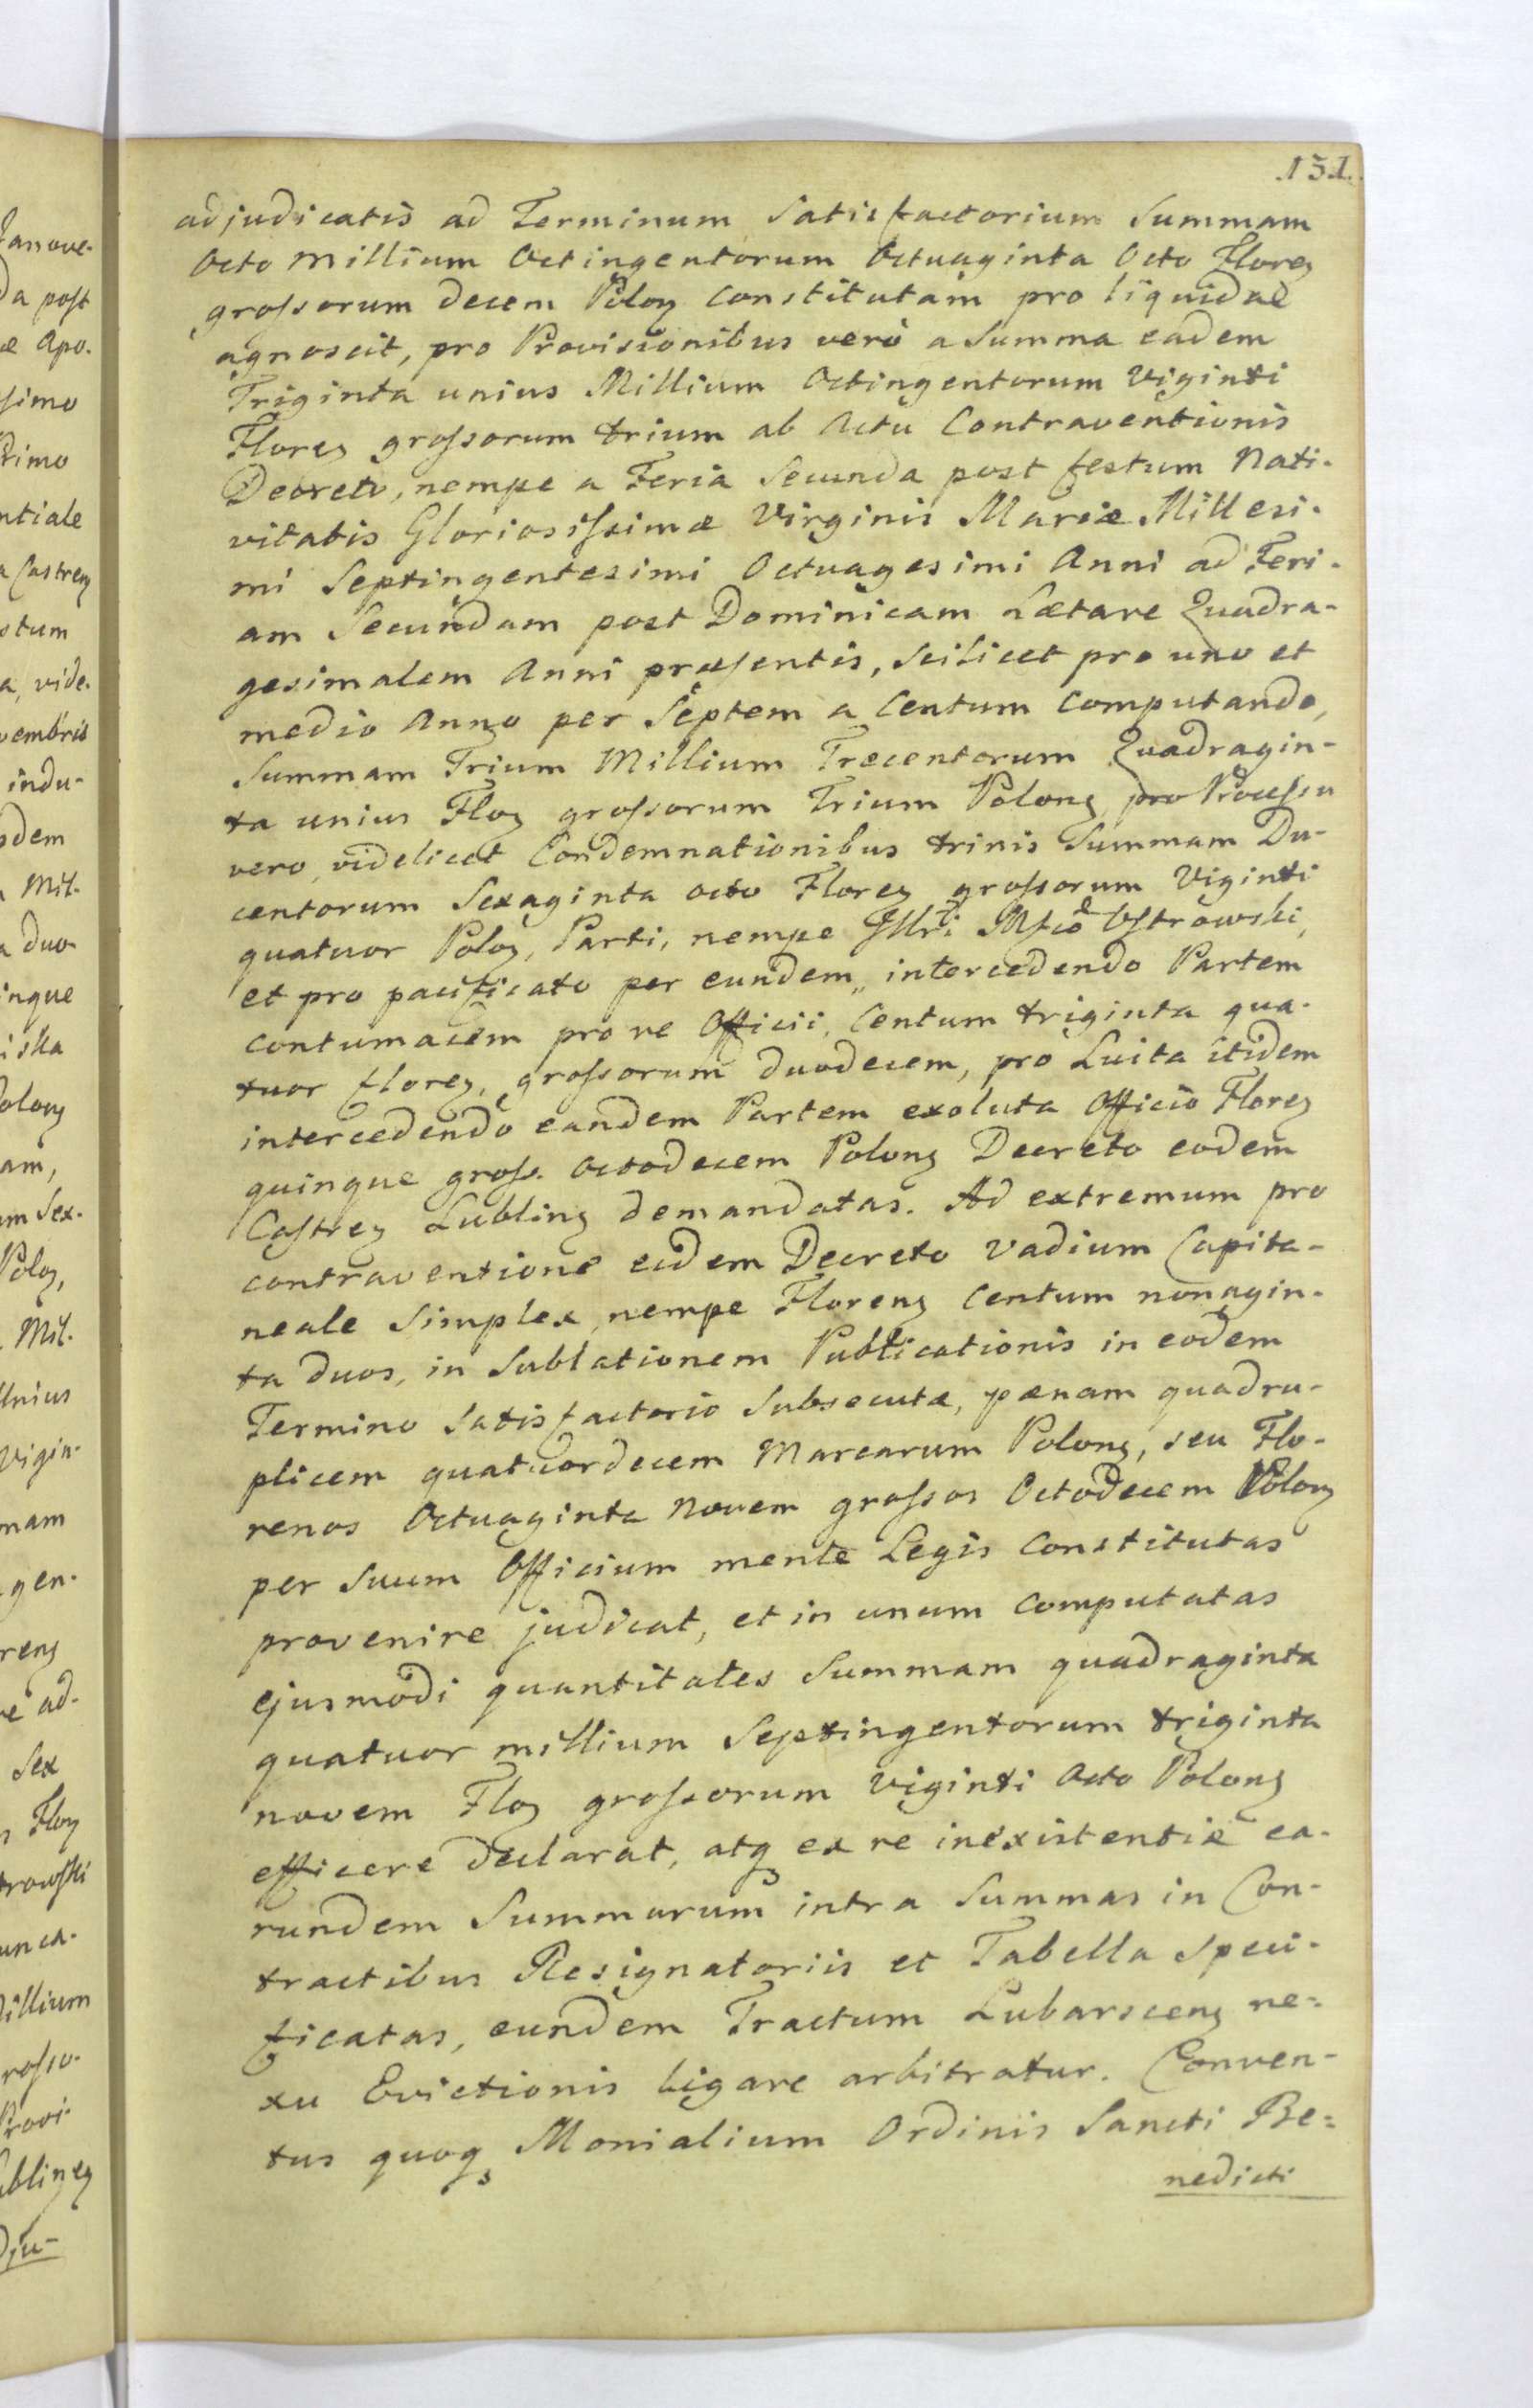 131.
adjudicatis ad Terminum Satisfactorium Summam
Octo Millium Octingentorum Octuaginta Octo Floreɳ
grossorum decem Poloɳ Constitutam pro liquidae
agnoscit, pro Provisionibus verò a Summa eadem
Triginta unius Millium Octingentorum Viginti
Floreɳ grossorum trium ab Actu Contraventionis
Decreto, nempe a Feria Secunda post festum Nati-
vitatis Gloriosissimæ Virginis Mariæ Millesi-
mi Septingentesimi Octuagesimi Anni ad Feri-
am Secundam post Dominicam Lætare Quadra-
gesimalem Anni præsentis, Scilicet pro uno et
medio Anno per Septem a Centum Computando,
Summam Trium Millium Trecentorum Quadragin-
ta unius Floɳ grossorum Trium Poloɳ, pro Processu
vero, videlicet Condemnationibus trinis Summam Du-
centorum Sexaginta octo Floreɳ grossorum Viginti
quatuor Poloɳ, Parti, nempe Illri Mfico Ostrowski,
et pro pacificato per eundem, intercedendo Partem
contumacem pro re Officii, Centum triginta qua-
tuor floreɳ, grossorum duodecem, pro Luita itidem
intercedendo eandem Partem exoluta Officio Floreɳ
quinque gross. Octodecem Poloɳ Decreto eodem
Castreɳ Lublinɳ demandatas. Ad extremum pro
contraventione eidem Decreto Vadium Capita-
neale Simplex, nempe Florenɳ Centum nonagin-
ta duos, in Sublationem Publicationis in eodem
Termino Satisfactorio Subsecutæ, pænam quadru-
plicem quatuordecem Marcarum Polonɳ, seu Flo-
renos Octuaginta Novem grossos Octodecem Polonɳ
per Suum Officium mente Legis Constitutas
provenire judicat, et in unum Computatas
ejusmodi quantitates Summam quadraginta
quatuor millium Septingentorum triginta
novem Floɳ grossorum Viginti Octo Polonɳ
efficere declarat, atq ex re inexistentiæ ea-
rundem Summarum intra Summas in Con-
tractibus Resignatoriis et Tabella Speci-
ficatas, eundem Tractum Lubarscenɳ ne=
xu Evictionis ligare arbitratur. Conven-
tus quoq Monialium Ordinis Sancti Be=
nedicti